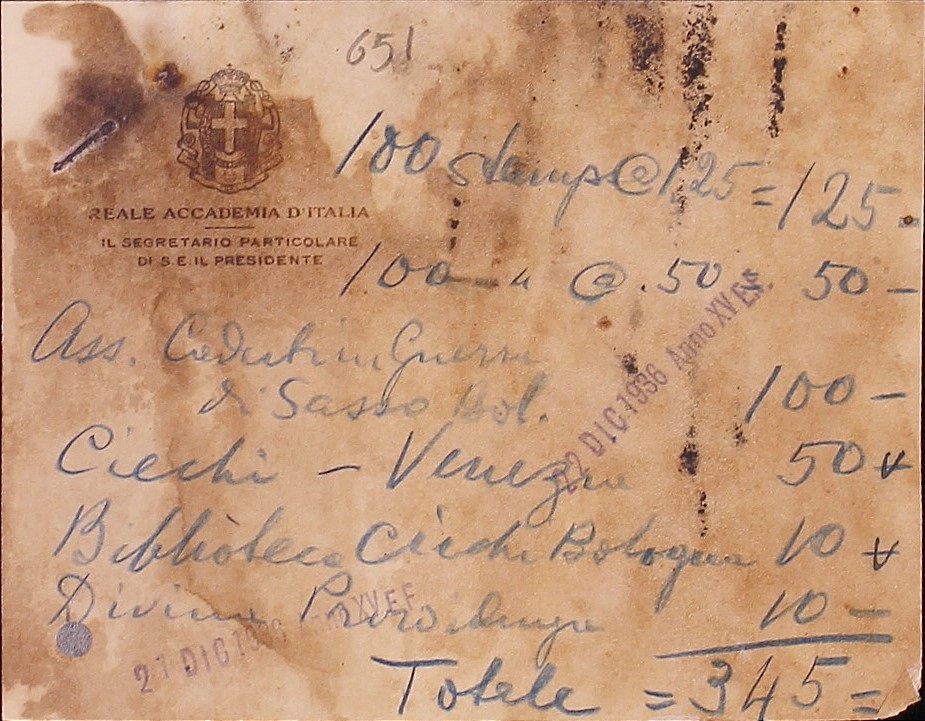 651
100 stamps @ 1,25 = 125.
REALE ACCADEMIA D'ITALIA
IL SEGRETARIO PARTICOLARE
DI S.E. IL PRESIDENTE
100 — " @ .50 = 50 –
Ass. Caduti in Guerra
di Sasso Bol. 100 –
22 DIC 1936 Anno XV E.F.
Ciechi – Venezia 50
Biblioteca Ciechi Bologna 10
Divina Provvidenza 10 –
21 DIC 1936 XV E.F.
Totale = 345 =